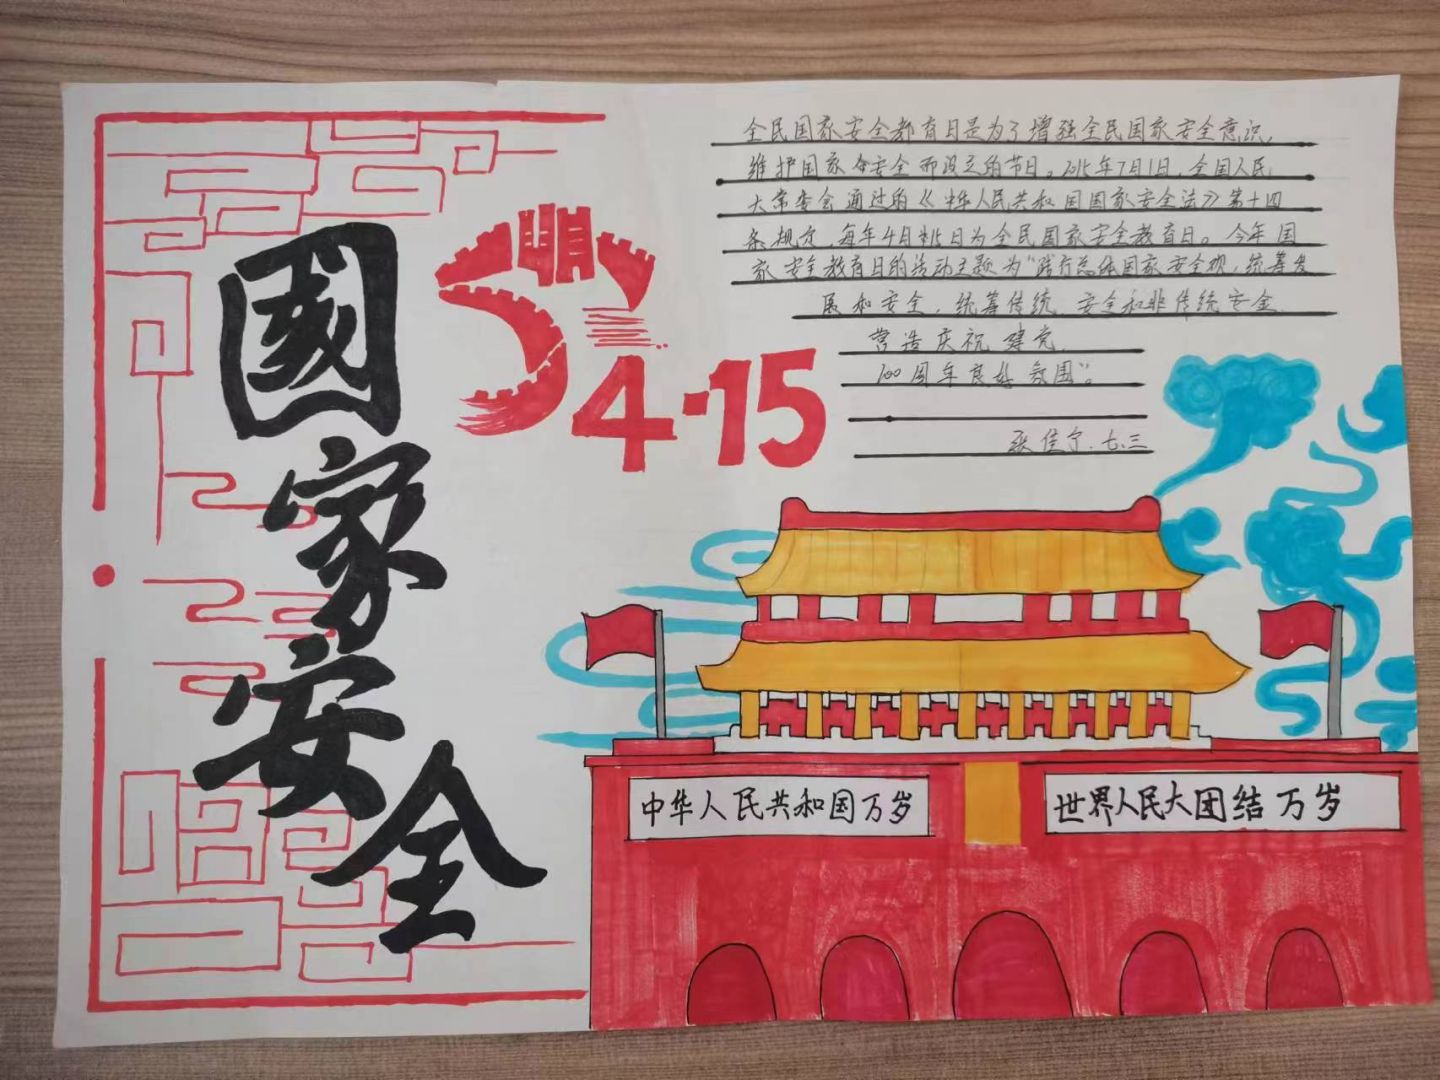 國家安全
4·15
全民国家安全教育日是为了增强全民国家安全意识,
维护国家安全而设定的节日。2015年7月1日,全国人民
大常委会通过的《中华人民共和国国家安全法》第十四
条规定,每年4月15日为全民国家安全教育日。今年国
家安全教育日的活动主题为“践行总体国家安全观,统筹发
展和安全,统筹传统安全和非传统安全,
营造庆祝建党
100周年良好氛围”。
张佳宁.七.三
中华人民共和国万岁
世界人民大团结万岁